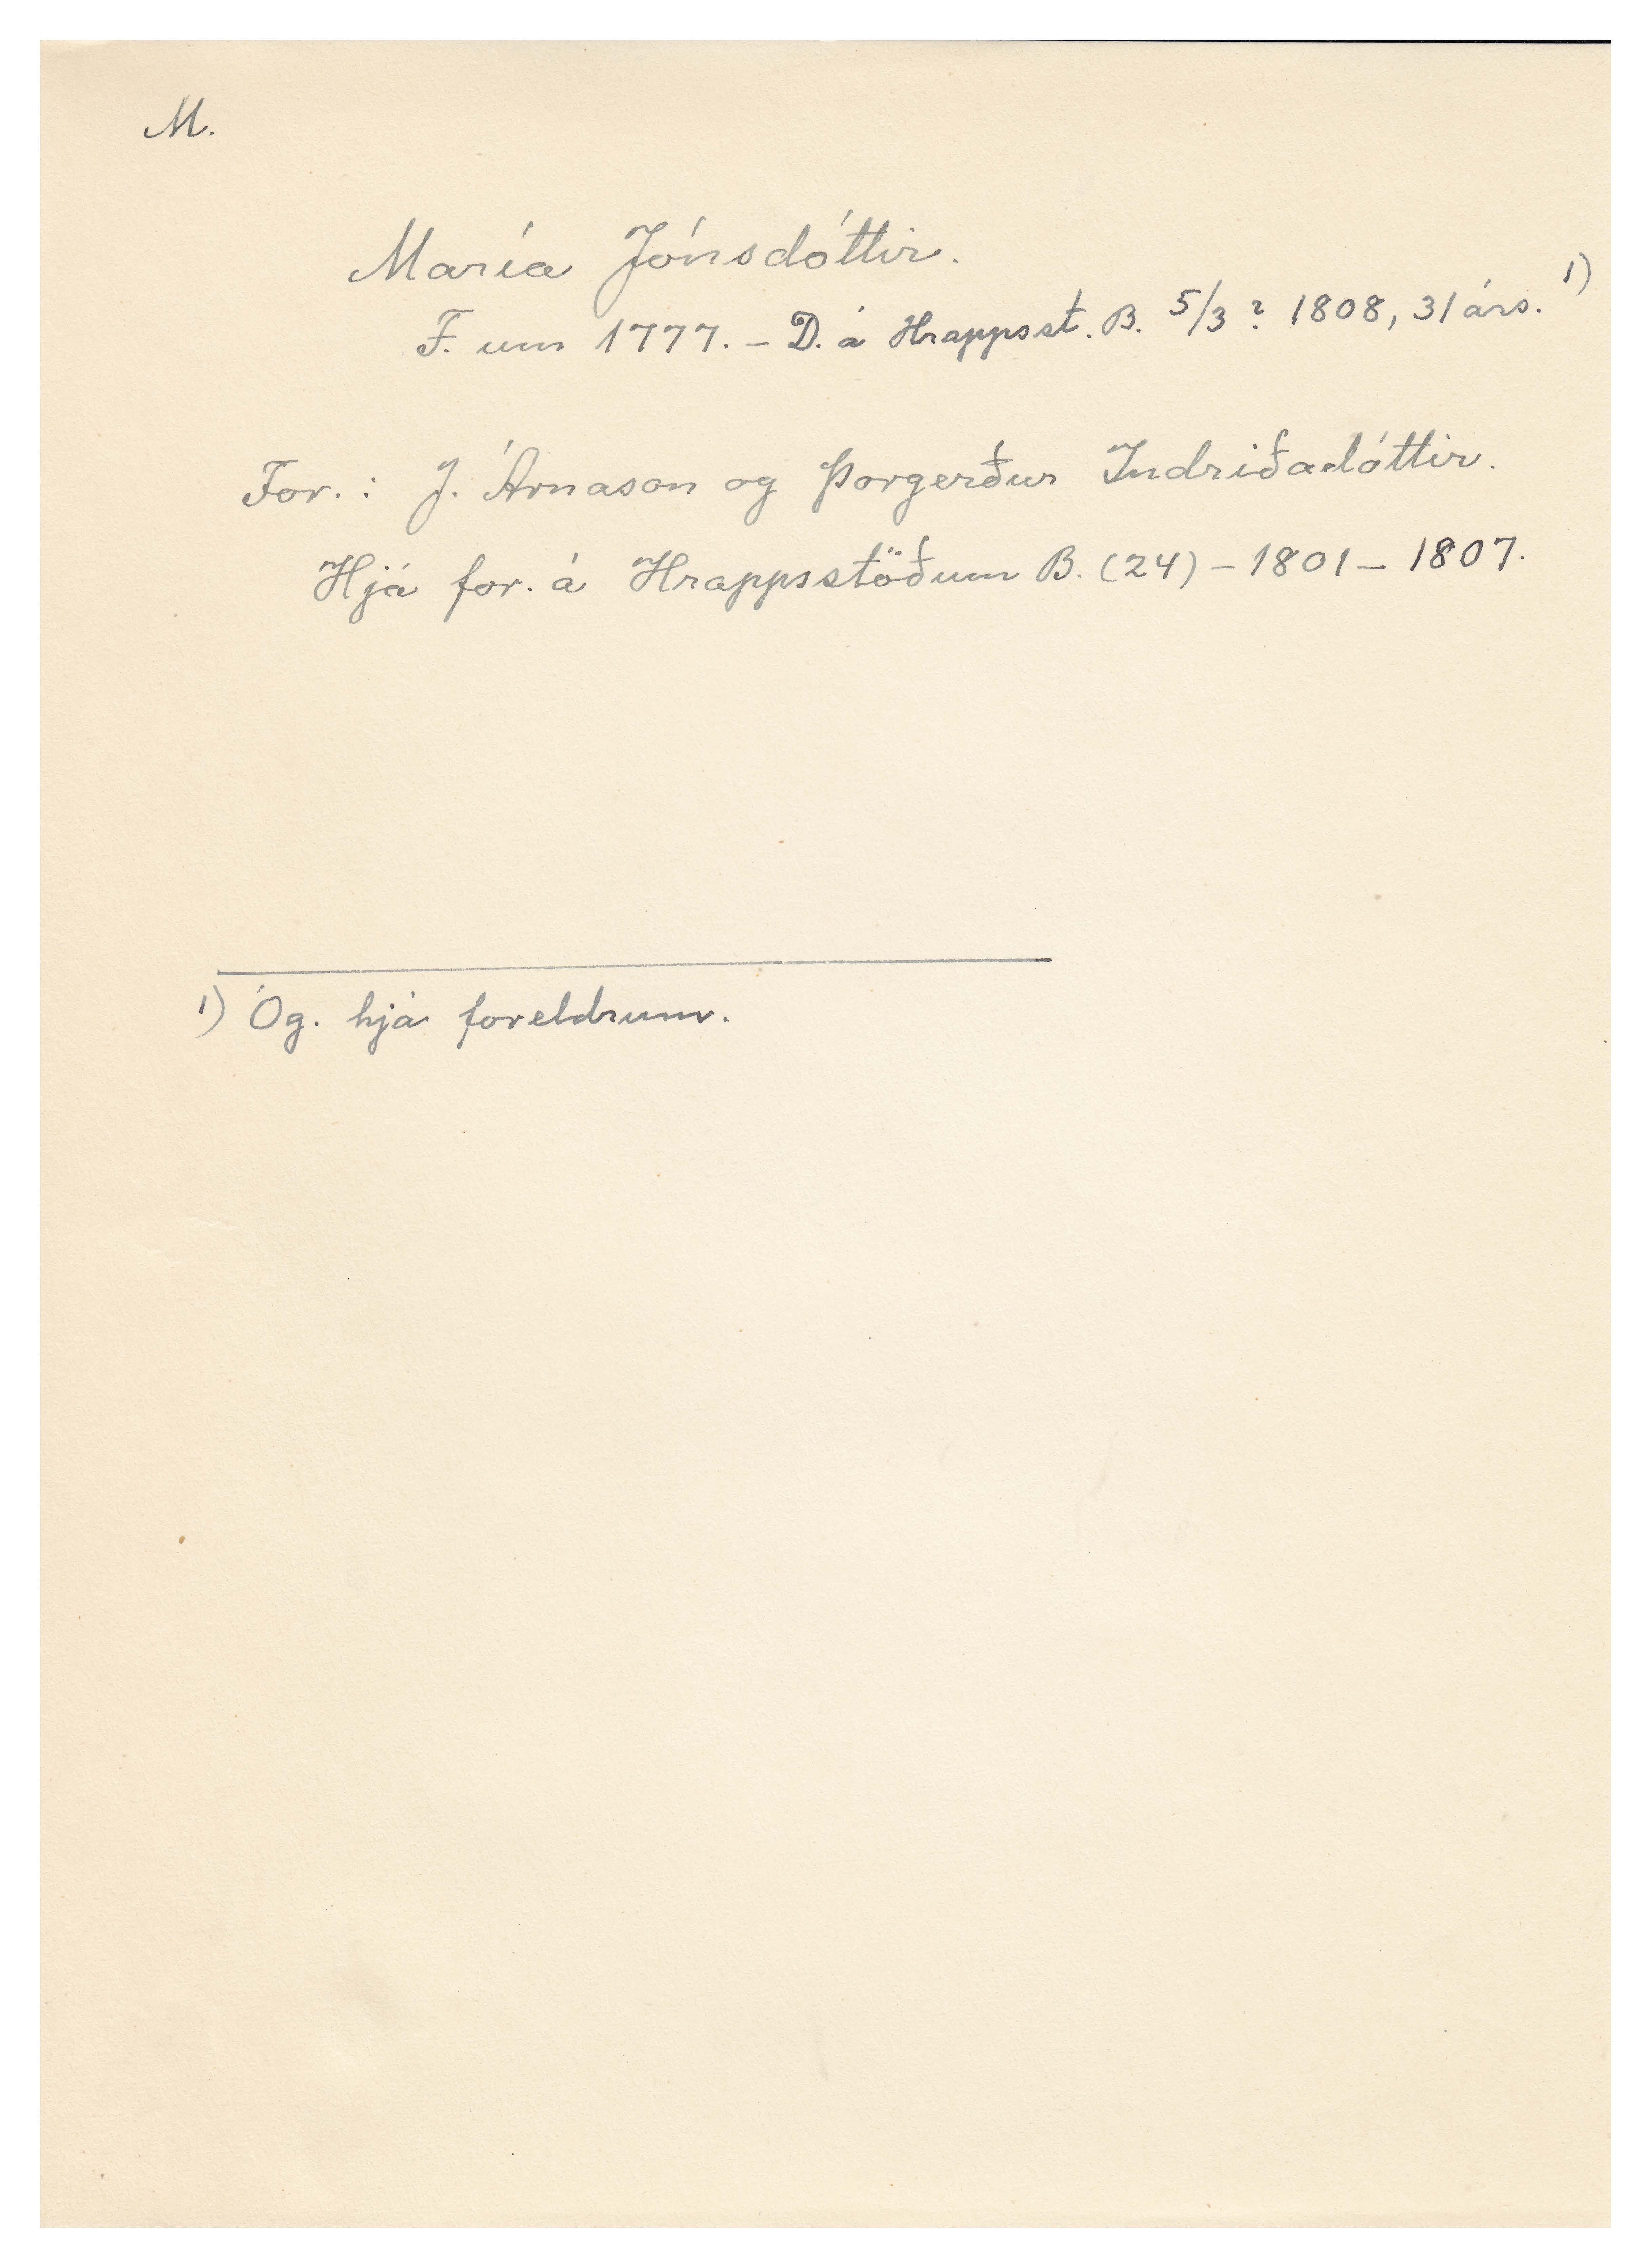 M.
María Jónsdóttir.
F. um 1777. – D. á Hrappsst. B. 5/3 ? 1808, 31 árs. 1)
For. : J. Árnason og Þorgerður Indriðadóttir.
Hjá for. á Hrappsstöðum B. (24) – 1801 – 1807.
1) Óg. hjá foreldrum.